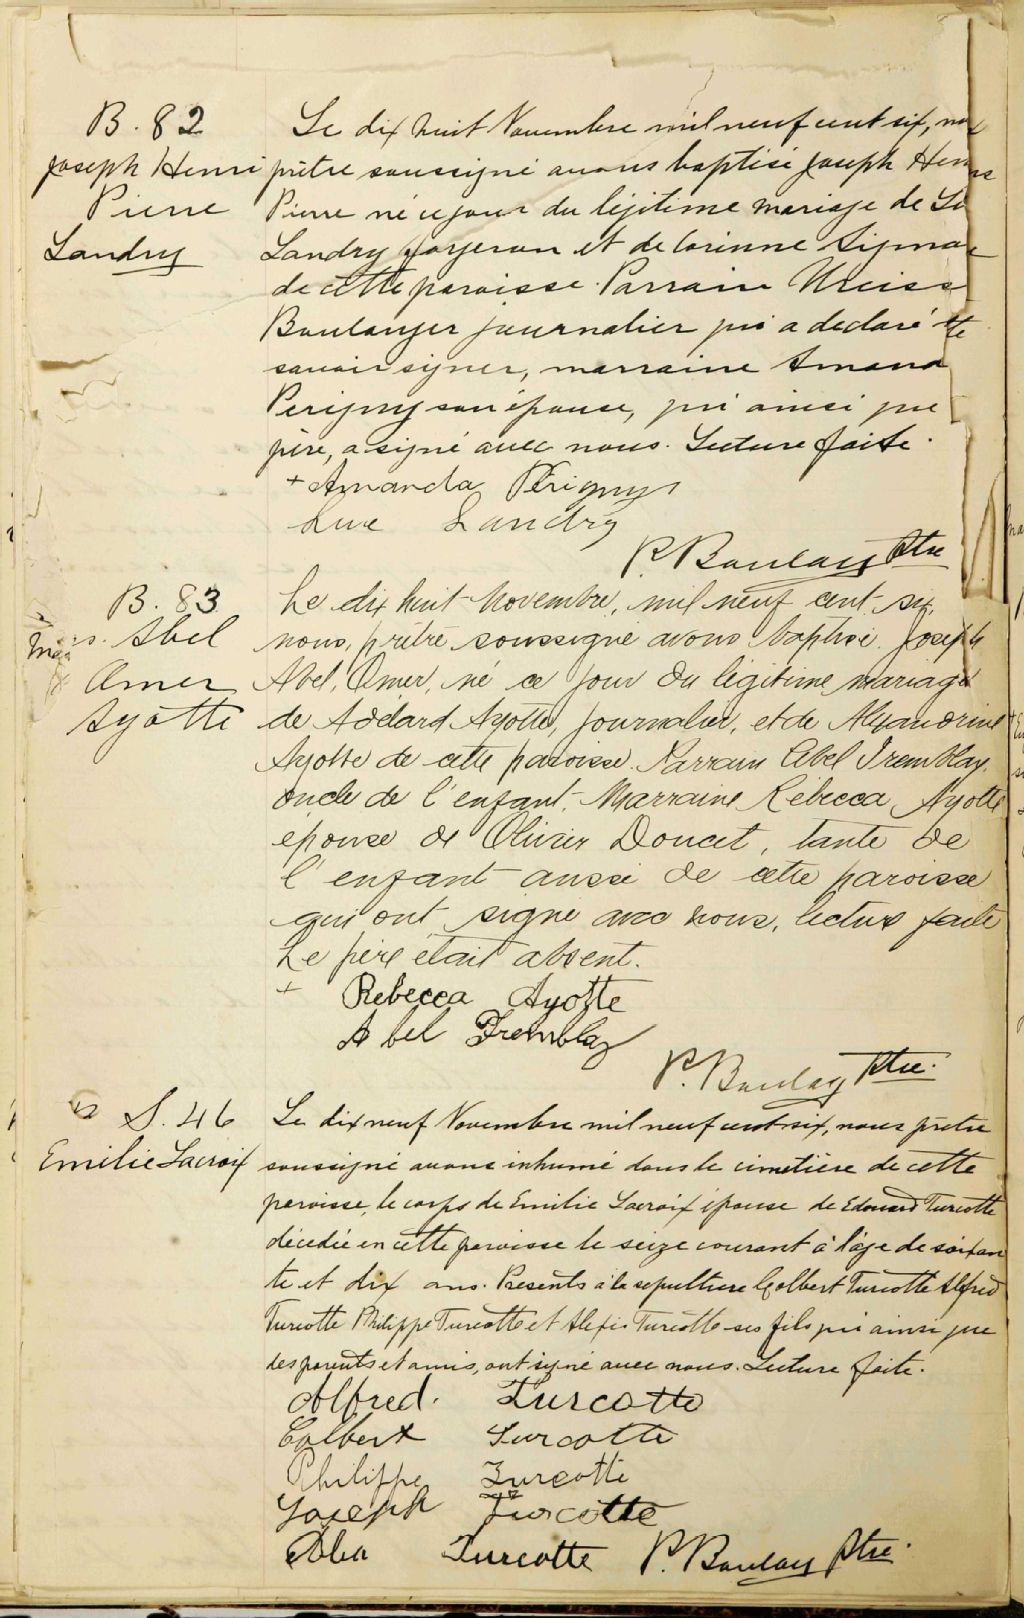 B. 82
Joseph Henri
Pierre
Landry
Le dix huit Novembre mil neuf cent six, nous
prêtre soussigné avons baptisé Joseph Henri
Pierre né ce jour du légitime mariage de
Landry forgeron et de Corinne
de cette paroisse. Parrain
Boulanger journalier qui a declaré
savoir signer, marraine Amand
Perigny son épouse, qui ainsi que
père, a signé avec nous. Lecture faite.
+ Amanda Périgny
Luc Landry
P. Boulay Ptre
B. 83
Abel
Omer
Ayotte
Le dix huit Novembre, mil neuf cent six,
nous, prêtre soussigné avons baptisé Joseph
Abel, Omer, né ce jour du légitime mariage
de Adélard Ayotte, journalier, et de Alexandrine
Ayotte de cette paroisse. Parrain Abel Tremblay,
oncle de l'enfant. Marraine Rébecca Ayotte
épouse de Olivier Doucet, tante de
l'enfant aussi de cette paroisse
qui ont signé avec nous, lecture faite
Le père était absent.
+ Rebecca Ayotte
Abel Tremblay
P. Boulay Ptre.
S. 46
Emilie Lacroix
Le dix neuf Novembre mil neuf cent six, nous prêtre
soussigné avons inhumé dans le cimetière de cette
paroisse, le corps de Emilie Lacroix épouse de Edouard Turcotte
décédée en cette paroisse le seize courant à l'âge de soixan
te et dix ans. Présents à la sépulture Colbert Turcotte Alfred
Turcotte Philippe Turcotte et Alexis Turcotte ses fils qui ainsi que
des parents et amis, ont signé avec nous. Lecture faite.
Alfred. Turcotte
Colbert Turcotte
Philippe Turcotte
Joseph Turcotte
Turcotte P. Boulay Ptre.